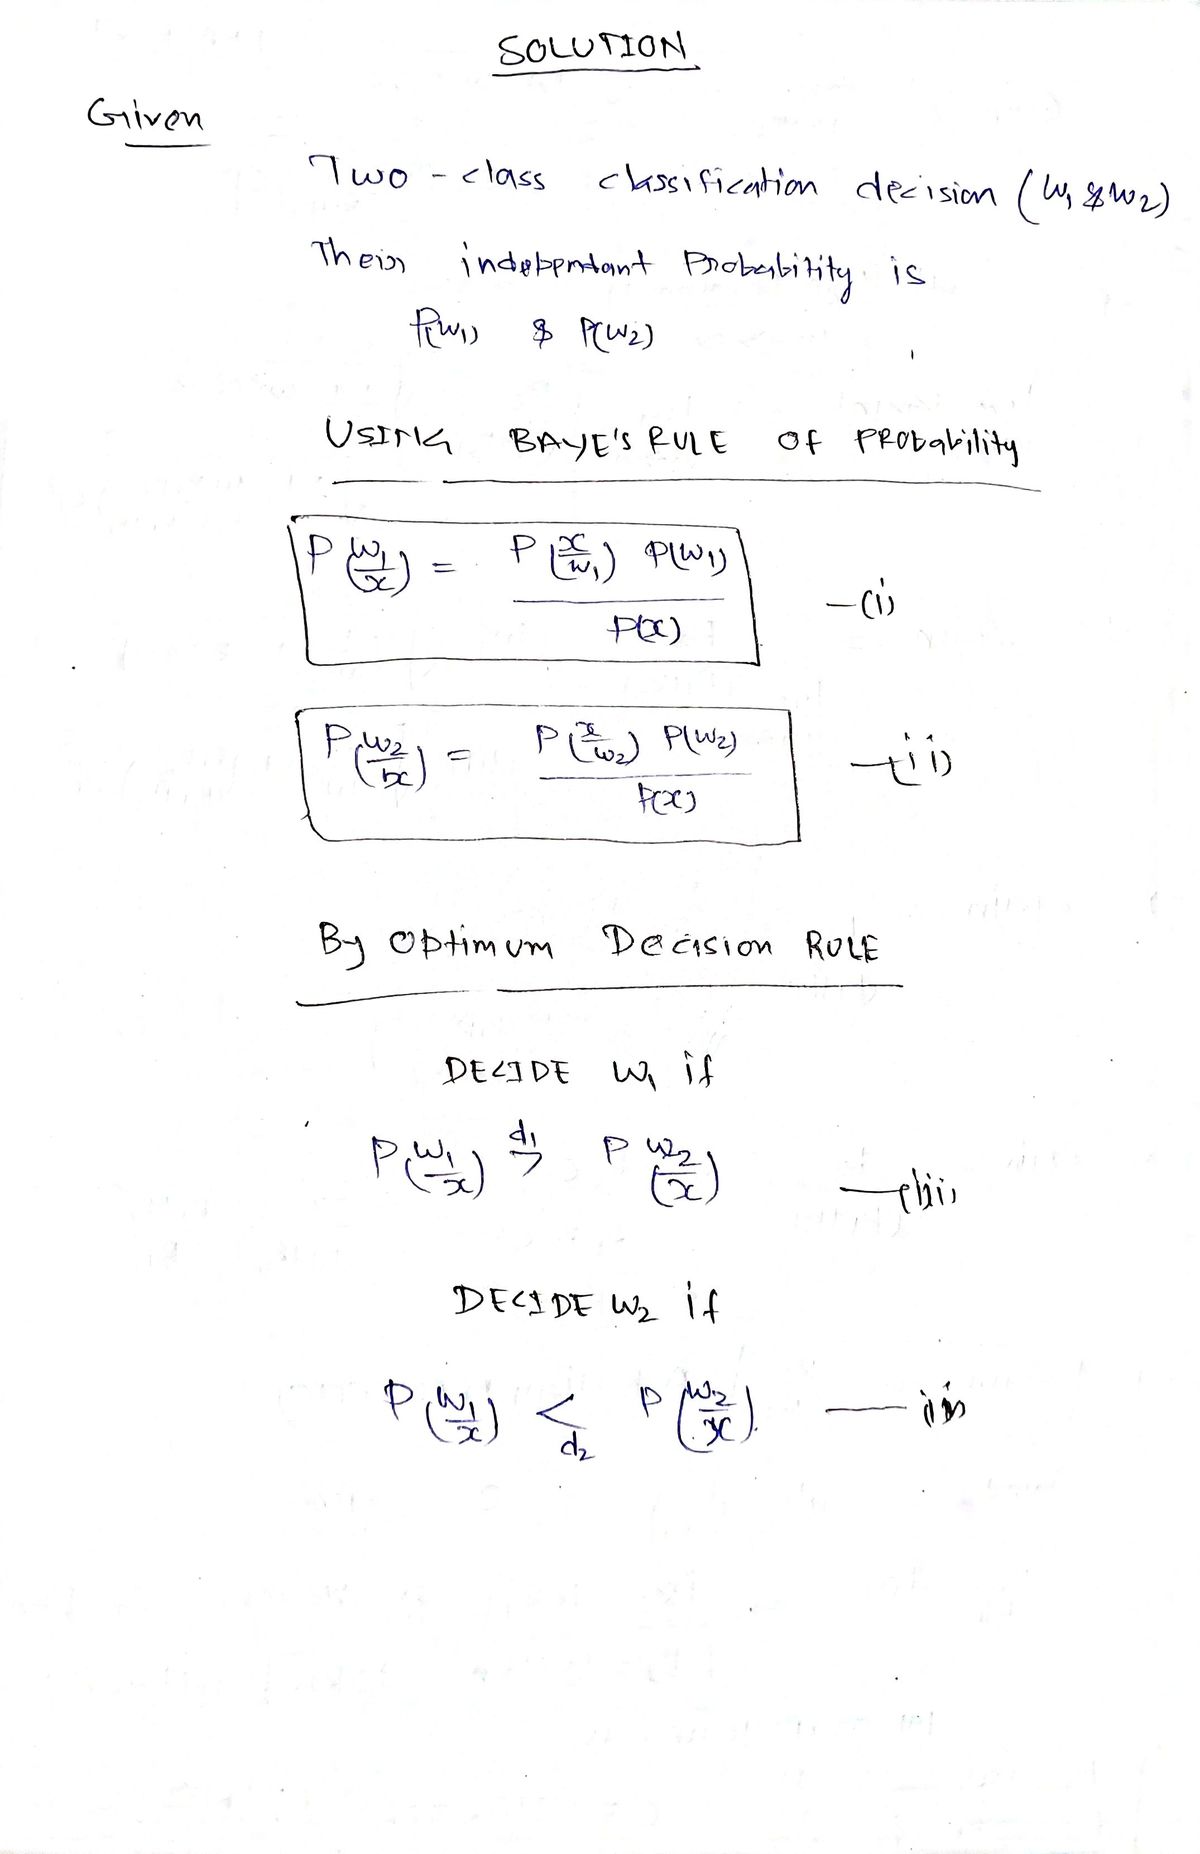 SOLUTION
Given
Two-class classification decision (W₁ & W₂)
Their independant Probability is
P(W₁) & P(W₂)
USING BAYE'S RULE OF PRObability
P(W₁/x) = P(x/W₁) P(W₁) / P(x) —(i)
P(W₂/x) = P(x/W₂) P(W₂) / P(x) —(ii)
By Optimum Decision RULE
DECIDE W₁ if
P(W₁/x) d₁ > P(W₂/x)
DECIDE W₂ if
P(W₁/x) < d₂ P(W₂/x)